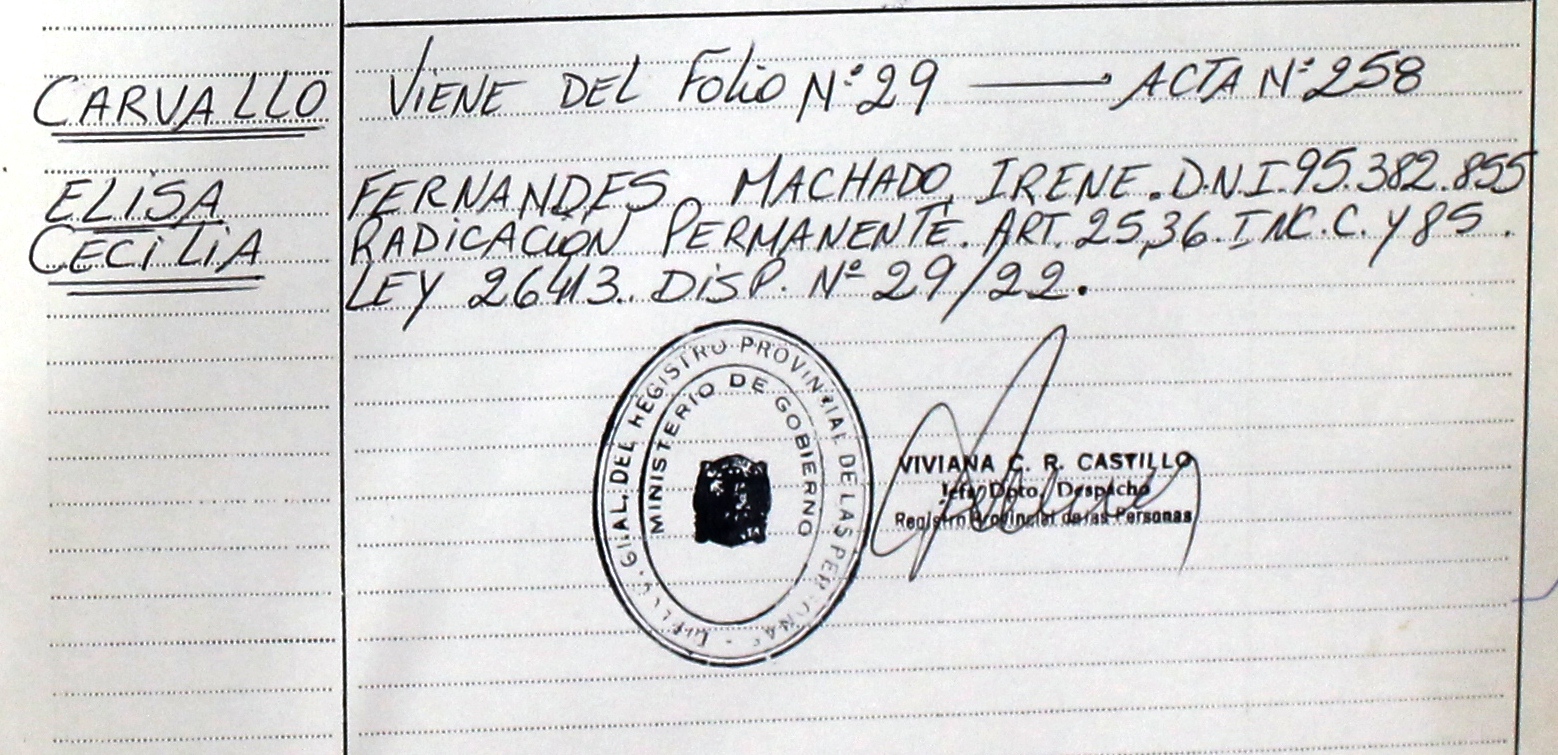 CARVALLO
ELISA
CECILIA
VIENE DEL FOLIO Nº 29 — ACTA Nº 258
FERNANDES MACHADO, IRENE. D.N.I. 95.382.855
RADICACIÓN PERMANENTE. ART. 25,36. INC. C. Y 85.
LEY 26413. DISP. Nº 29/22.
GRAL. DEL REGISTRO PROVINCIAL DE LAS PERSONAS
MINISTERIO DE GOBIERNO
VIVIANA C. R. CASTILLO
Jefa Dpto. Despacho
Registro Provincial de las Personas